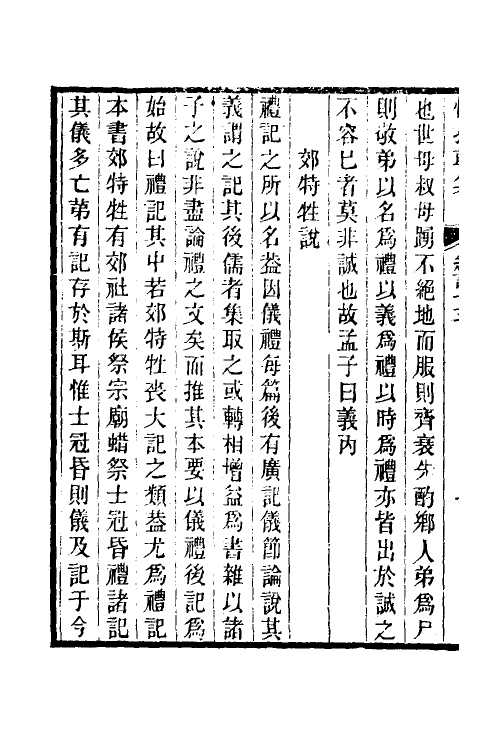 也世母叔母踴不絕地而服則齊衰先酌鄉人弟爲尸
則敬弟以名爲禮以義爲禮以時爲禮亦皆出於誠之
不容已者莫非誠也故孟子曰義內
郊特牲說
禮記之所以名葢因儀禮每篇後有廣記儀節論說其
義謂之記其後儒者集取之或轉相增益爲書雜以諸
子之說非盡論禮之文矣而推其本要以儀禮後記爲
始故曰禮記其中若郊特牲喪大記之類葢尤爲禮記
本書郊特牲有郊社諸侯祭宗廟蜡祭士冠昏禮諸記
其儀多亡苐有記存於斯耳惟士冠昏則儀及記于今